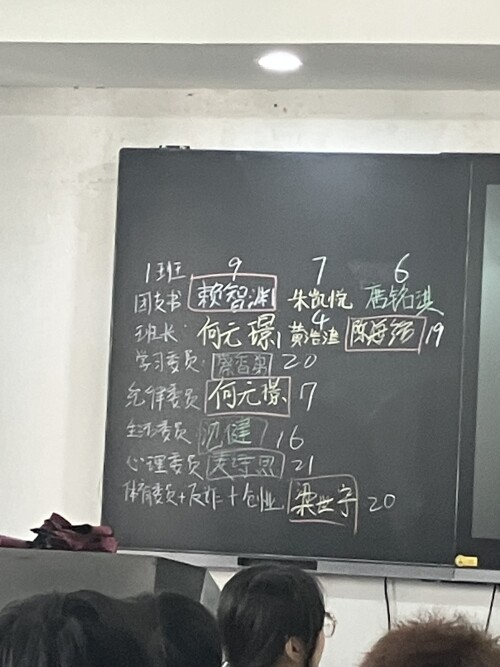 1班 9 7 6
团支书 赖智渊 朱凯悦 唐铭淇
班长: 何元璟 1 黄浩 4 陈 19
学习委员: 20
纪律委员 何元璟 7
生活委员 沈健 16
心理委员 21
体育委员+反诈+创业 梁世宇 20